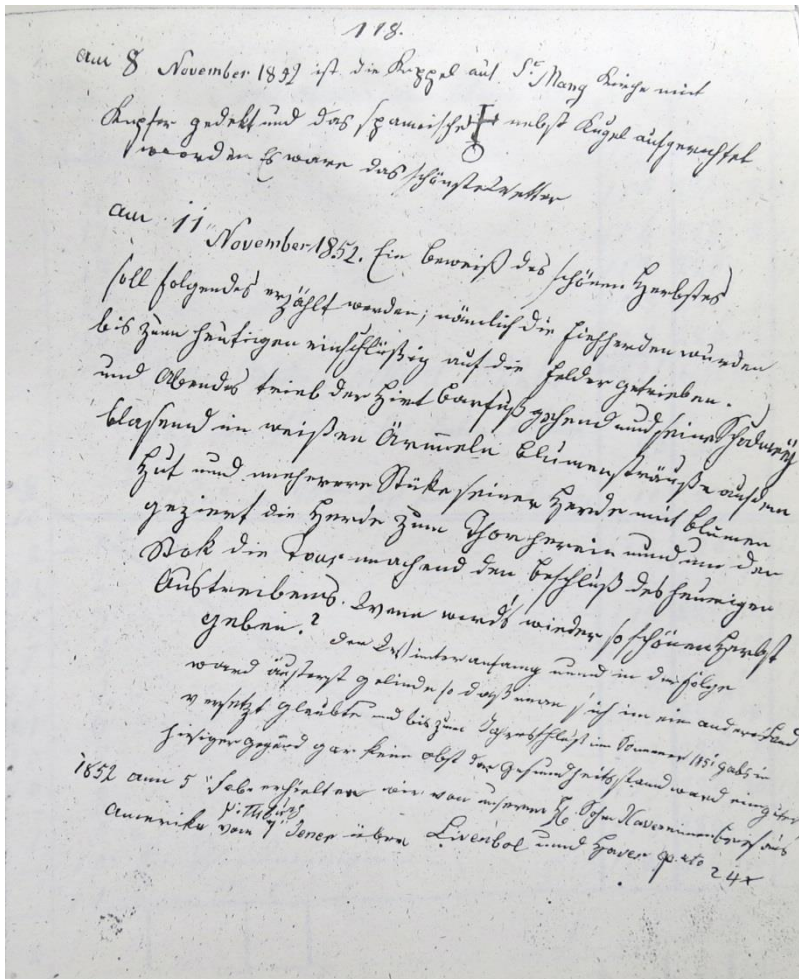 118.
am 8 November 1852 ist die Kuppel auf St Mang Kirche mit
Kupfer gedekt und das spanische nebst Kugel aufgerichtet
worden Es ware das schönste Wetter
am 11 November 1852. Ein beweiß des schönen Herbstes
soll folgendes erzählt werden; nämlich die Viehherden wurden
bis zum heutigen einschlüßig auf die Felder getrieben.
und Abends trieb der Hirt barfuß gehend und seine
blasend in weißen Ärmeln blumensträuße auf dem
Hut und mehrere Stüke seiner Herde mit blumen
geziert die Herde zum Thor herein und um den
Stok die Tour machend den beschluß des heurigen
Austreibens. Wenn wird's wieder so schönen Herbst
geben.? der Winter anfang und in der folge
ward äuserst gelinde so daß man sich in ein anderes Land
versetzt glaubte und bis zum Jahresschluß im Sommer gab's in
hisiger gegend gar kein obst der Gesundheitsstand ward ein guter
1852 am 5 Feb. erhielten wir von unserem Sohn Xaver einen brief aus
Amerika vom 7 Jener über Livenbol und Haver 24 x